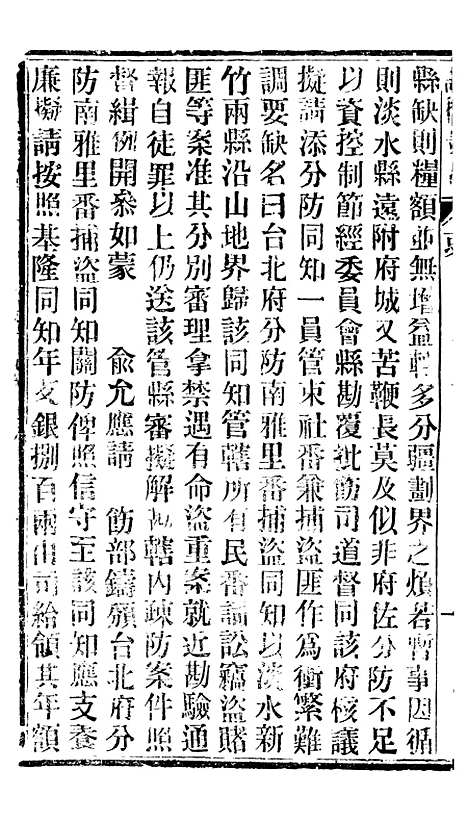 縣缺則糧額並無增益轉多分疆劃界之煩若暫事因循
則淡水縣遠附府城又苦鞭長莫及似非府佐分防不足
以資控制節經委員會縣勘覆批飭司道督同該府核議
擬請添分防同知一員管束社番兼捕盜匪作為衝繁難
調要缺名曰台北府分防南雅里番捕盜同知以淡水新
竹兩縣沿山地界歸該同知管轄所有民番詞訟竊盜賭
匪等案准其分別審理拿禁遇有命盜重案就近勘驗通
報自徒罪以上仍送該管縣審擬解 轄內疎防案件照
督緝例開叅如蒙 俞允應請 飭部鑄頒台北府分
防南雅里番捕盜同知關防俾照信守至該同知應支養
廉擬請按照基隆同知年支銀捌百兩由司給領其年額